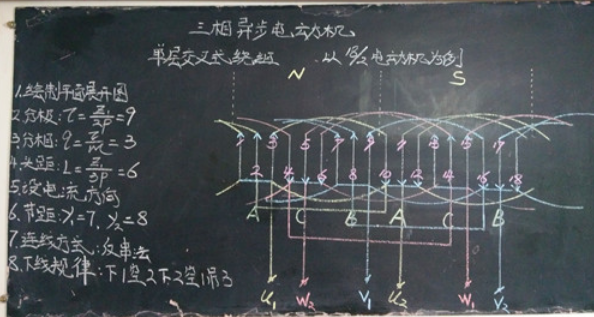 三相异步电动机
单层交叉式绕组 以18/2电动机为例
N S
1.绘制平面展开图
2.分极:τ=Z/2P=9
3.分相:q=Z/2PC=3
4.极距:L=Z/3P=6
5.设电流方向
6.节距:Y₁=7, Y₂=8
7.连线方式:反串法
8.下线规律:下1空2下2空1吊3
2 4 6 8 10 12 14 16 18
A C B A C B
U₁ W₂ V₁ U₂ W₁ V₂